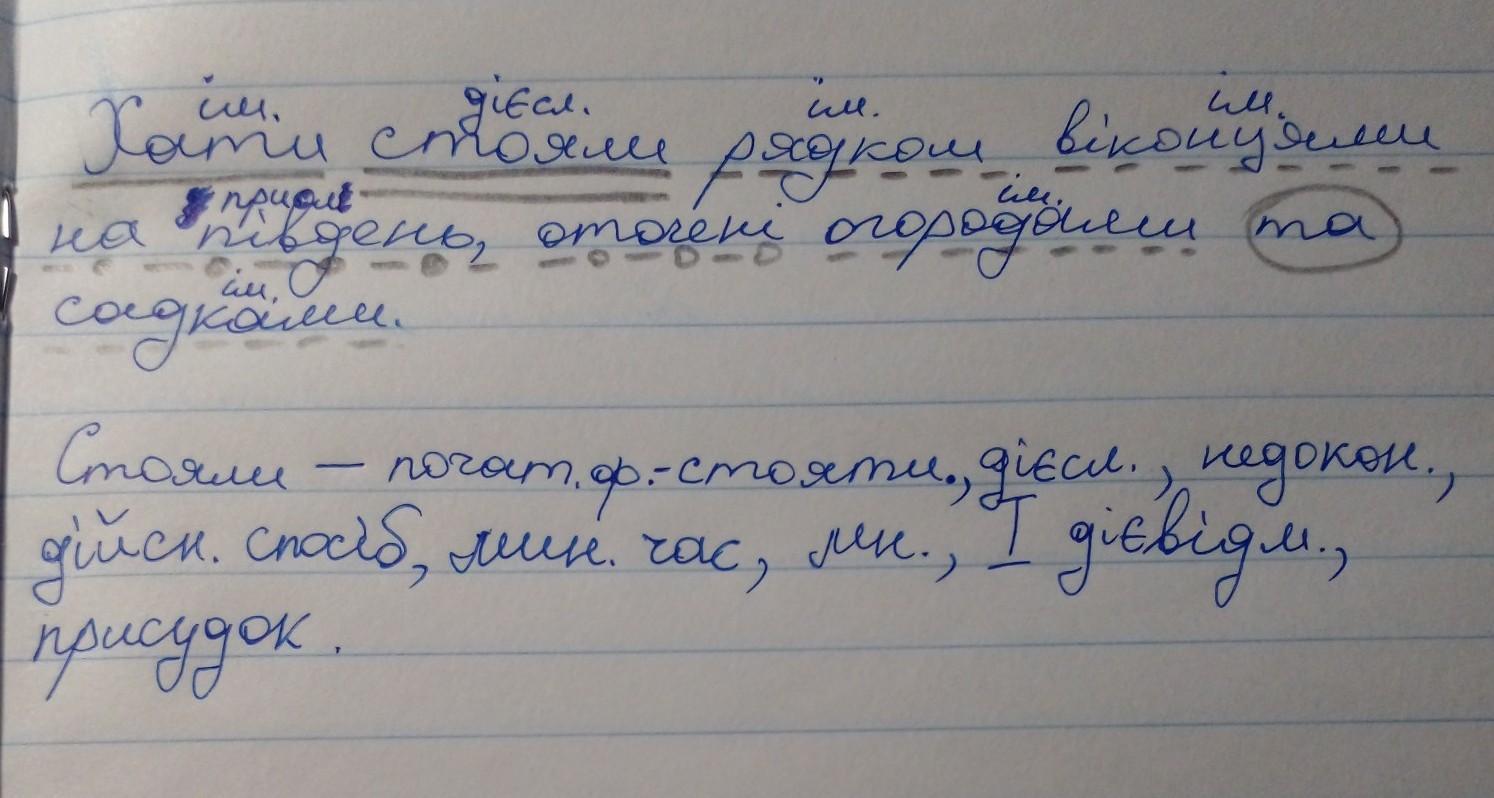 ім. дієсл. ім. ім.
Хати стояли рядком віконцями
присл ім.
на південь, оточені огородами та
ім.
садками.
Стояли — почат. ф.-стояти., дієсл., недокон.,
дійсн. спосіб, мин. час, мн., I дієвідм.,
присудок.